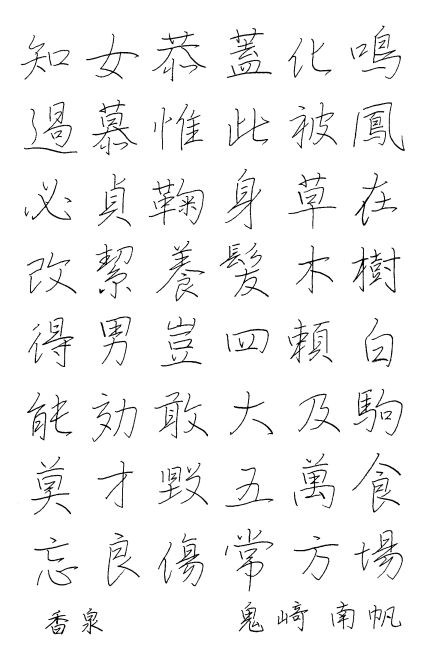 鳴鳳在樹白駒食場
化被草木頼及萬方
蓋此身髪四大五常
恭惟鞠養豈敢毀傷
女慕貞絜男効才良
知過必改得能莫忘
鬼﨑南帆
香泉